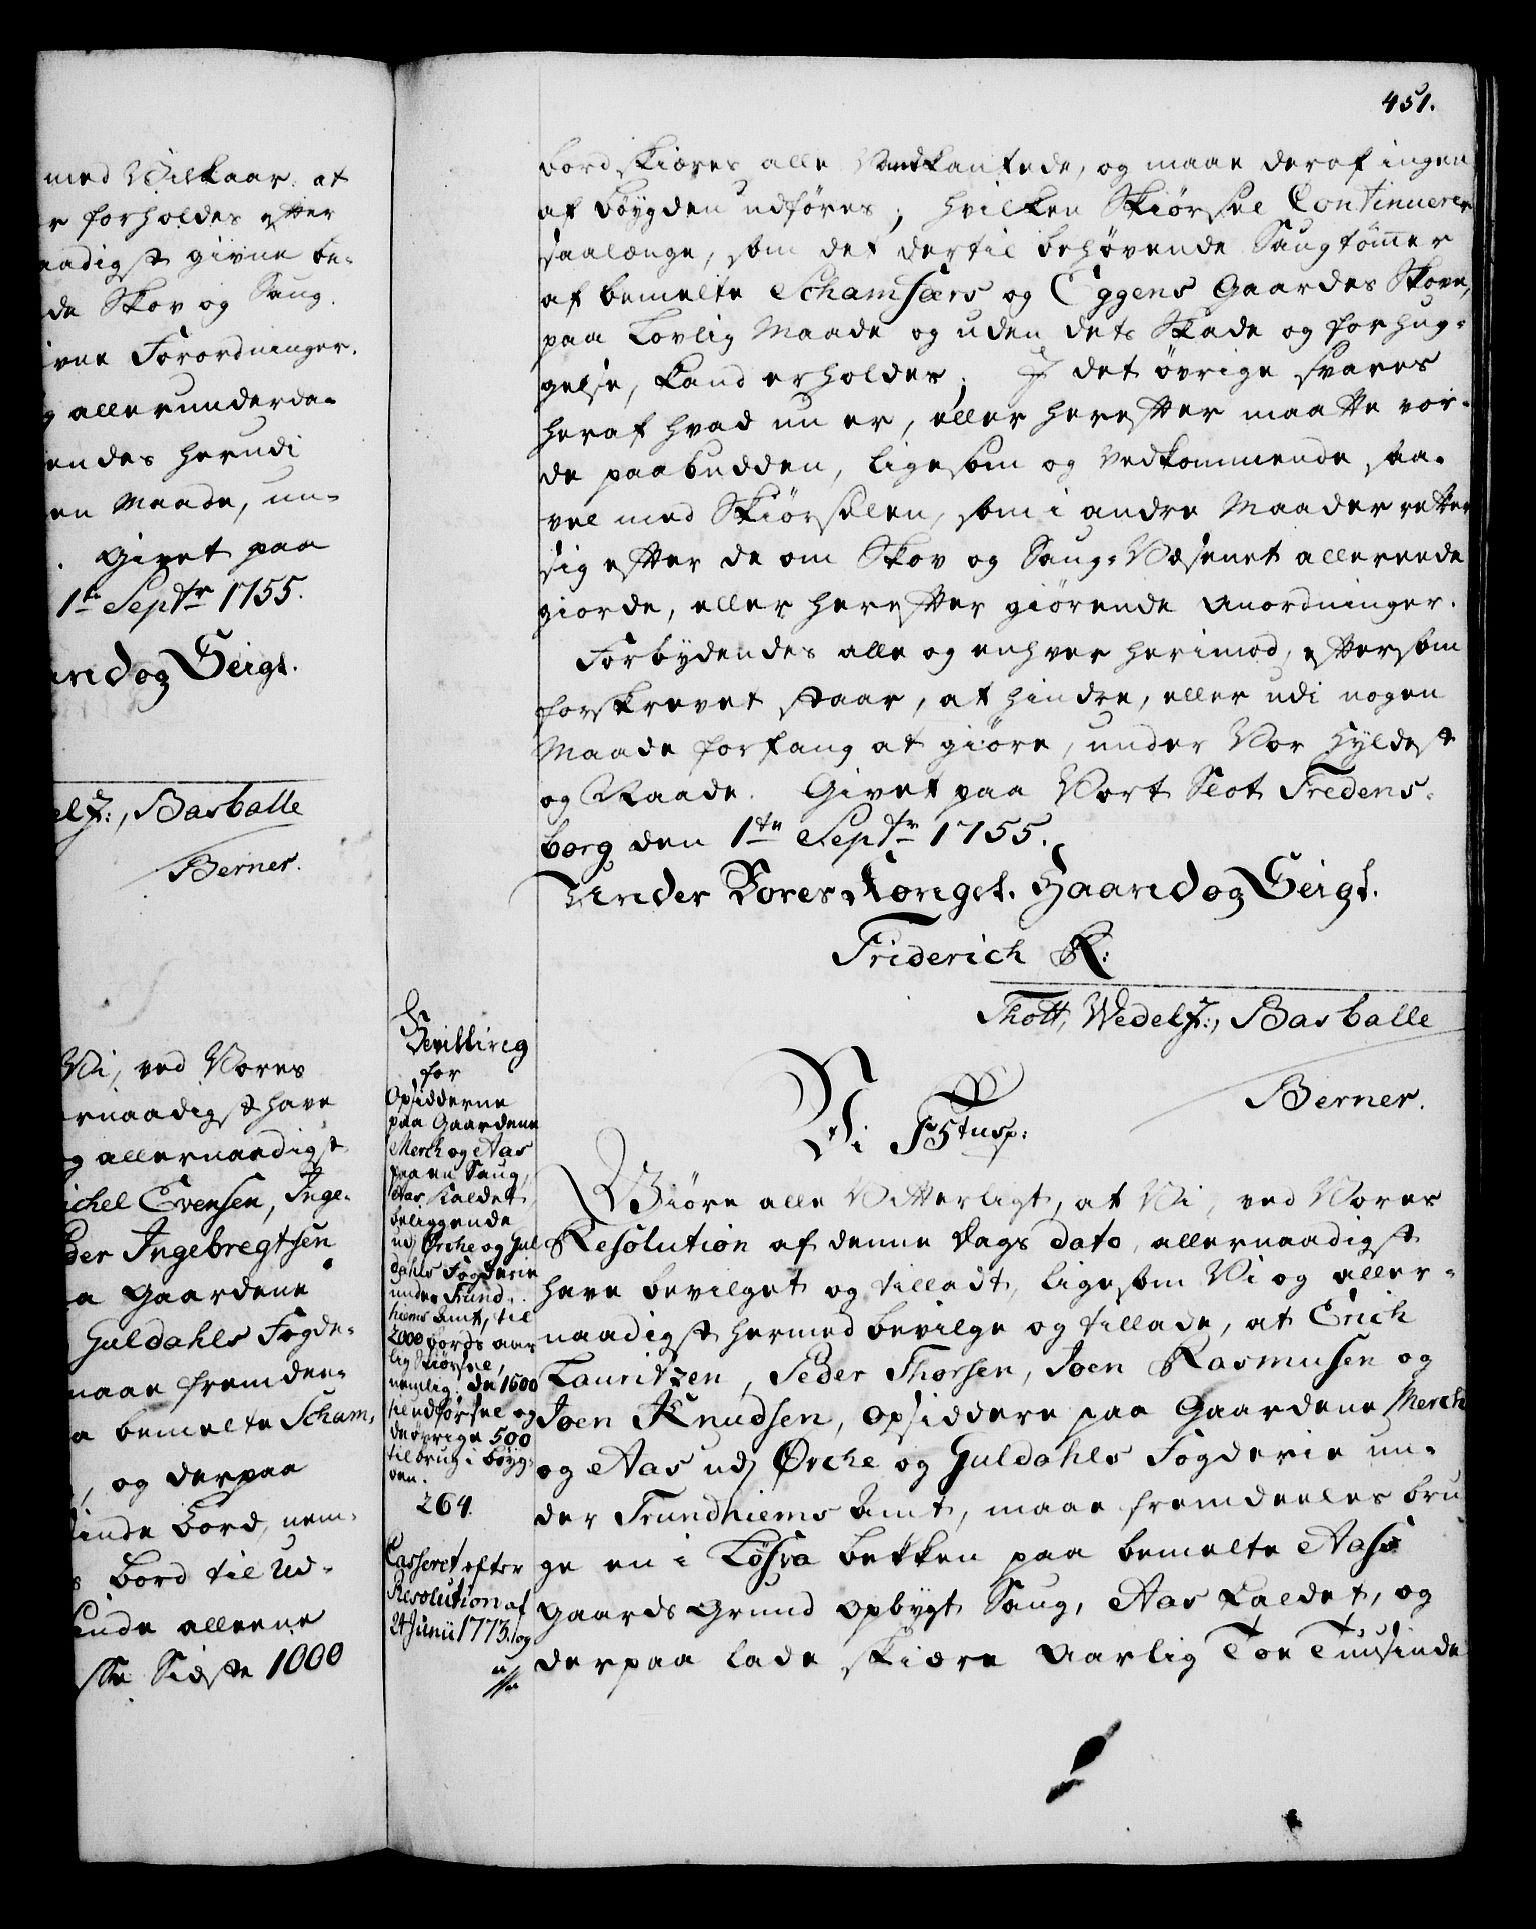 med Vilkaar, at
r forholdes efter
aadigst givne be-
de Skov og Saug
ivne Forordninger.
g allerunderda-
endes herudi
en Maade, un-
. Givet paa
1te Septr 1755.
and og Seigl.
el F:, Basballe
Berner.
Vi, ved Vores
ernaadigst have
g allernaadigst
ichel Evensen, Inge-
der Ingebregtsen
a Gaardene
Guldahls Fogde-
maae fremdee-
a bemelte Scham-
, og derpaa
sinde Bord, nem-
s Bord til ud-
sinde alleene
sse Sidste 1000
451.
bord skiæres alle Vandkantede, og maae deraf ingen
af Bøygden udføres; hvilken Skiørsel Continuerer
saalænge, som det dertil behøvende Saugtømmer
af bemelte Schamfærs og Eggens Gaardes Skove,
paa Lovlig Maade og uden dets Skade og forhug-
gelse, kand erholdes; I det øvrige svares
heraf hvad nu er, eller herefter maatte vor-
de paabudden, ligesom og Vedkommende saa-
vel med Skiørselen, som i andre Maader retter
sig efter de om Skov og Saug-Væsenet allereede
giorde, eller herefter giørende Anordninger.
Forbydendes alle og enhver herimod, eftersom
forskrevet staar, at hindre, eller udi nogen
Maade forfang at giøre, under Vor Hyldest
og Naade. Givet paa Vort Slot Fredens-
borg den 1te Septr 1755.
Under Vores Kongel. Haand og Seigl.
Friderich R:
Thott, Wedel F:, Basballe
Berner.
Bevilling
for
Opsidderne
paa Gaardene
Merch og Aas
paa en Saug,
Aas kaldet,
beliggende
udj Ørche og Gul
dahls Fogderie
under Trund-
hiems Amt, til
2000 bords aar
lig Skiørsel,
nemlig: de 1500
til udførsel og
de øvrige 500
til brug i bøyg-
den.
264.
Casseret efter
Resolution af
24 Junii 1773. log
Vi F5tus p:
Giøre alle Vitterligt, at Vi, ved Vores
Resolution af denne Dags dato, allernaadigst
have bevilget og tilladt, ligesom Vi og aller-
naadigst hermed bevilge og tillade, at Erich
Lauritzen, Peder Thorsen, Joen Rasmusen og
Joen Knudsen, Opsiddere paa Gaardene Merch
og Aas udj Ørche og Guldahls Fogderie un-
der Trundhiems Amt, maae fremdeeles bru
ge en i Løsva bekken paa bemelte Aas
Gaards Grund Opbygt Saug, Aas kaldet, og
derpaa lade skiære Aarlig Toe Tusinde